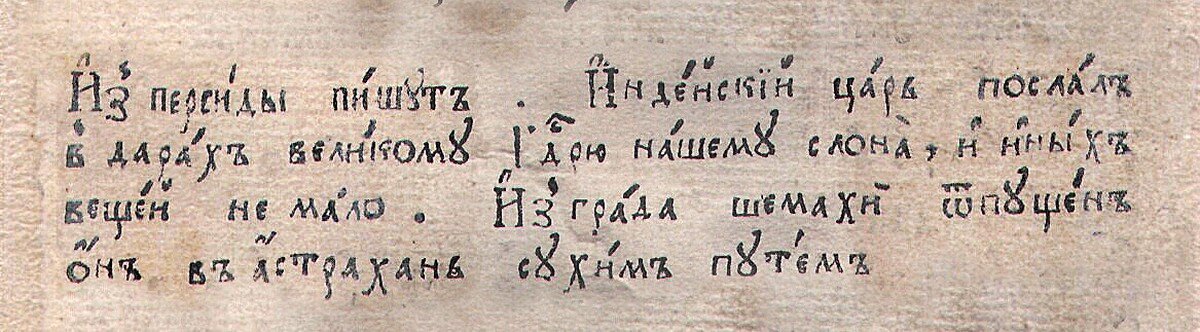 И҆з̾ персі́ды пи́шутъ . И҆нде́йскїй ца́рь посла́лъ
в̾ дара́хъ вели́кому Гдⷭ҇рю на́шему слона̀, и҆ и҆ны́хъ
веще́й не ма́ло . И҆з̾ гра́да шемахи̑ ѿпꙋще́нъ
ѻ҆́нъ въ а҆́страхань сꙋхи́мъ пꙋте́мъ